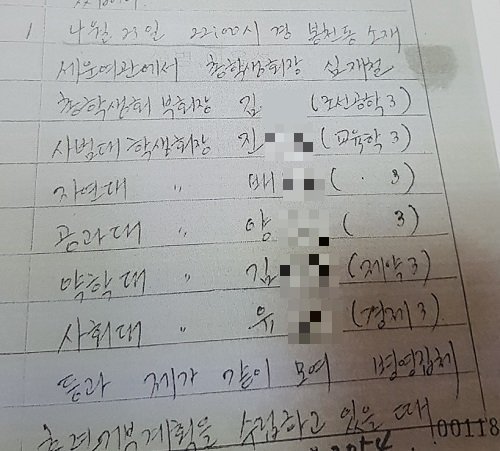 1 4월 25일 22:00시 경 봉천동 소재
세운여관에서 총학생회장 심재철
총학생회 부회장 김 (조선공학3)
사범대 학생회장 진 (교육학3)
자연대 〃 배 ( . 3)
공과대 〃 양 ( 3)
약학대 〃 김 (제약3)
사회대 〃 유 (경제3)
등과 제가 같이 모여 병영집체
훈련거부계획을 수립하고 있을 때
00118